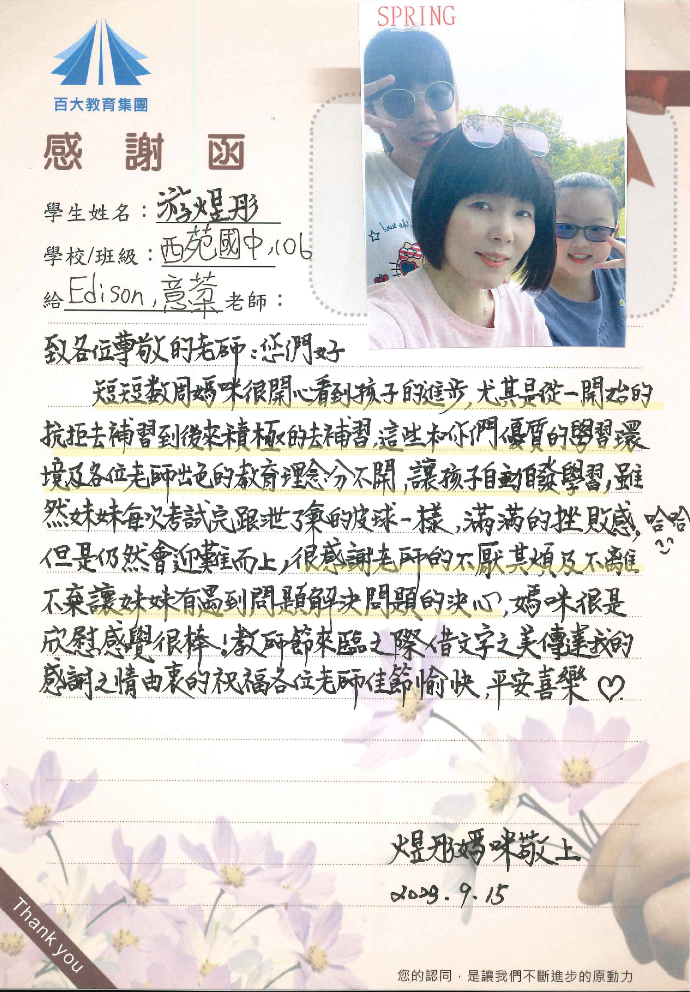 SPRING
百大教育集團
感謝函
學生姓名：游煜彤
學校/班級：西苑國中,106
給Edison,意棻老師：
致各位尊敬的老師：您們好
短短数周媽咪很開心看到孩子的進步,尤其是從一開始的
抗拒去補習到後來積極的去補習,這些和你們優質的學習環
境及各位老師出色的教育理念分不開,讓孩子自動自發學習,雖
然妹妹每次考試完跟泄了氣的皮球一樣,滿滿的挫敗感,哈哈
但是仍然會迎難而上,很感謝老師的不厭其煩及不離
不棄讓妹妹有遇到問題解決問題的決心,媽咪很是
欣慰感覺很棒!教師節來臨之際借文字之美傳達我的
感謝之情由衷的祝福各位老師佳節愉快,平安喜樂♡.
煜彤媽咪敬上
2023.9.15
Thank you
您的認同，是讓我們不斷進步的原動力